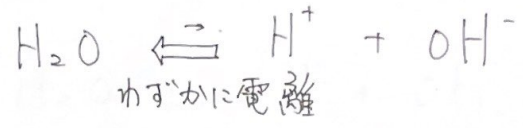 H₂O ⇄ H⁺ + OH⁻
わずかに電離